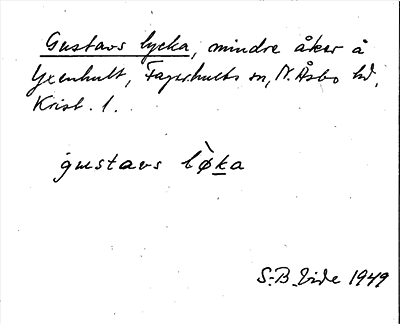 Gustavs lycka, mindre åker å
Yxenhult, Fagerhults sn, N. Åsbo hd,
Krist. l.
gustavs lø̀ka
S.-B. Vide 1949